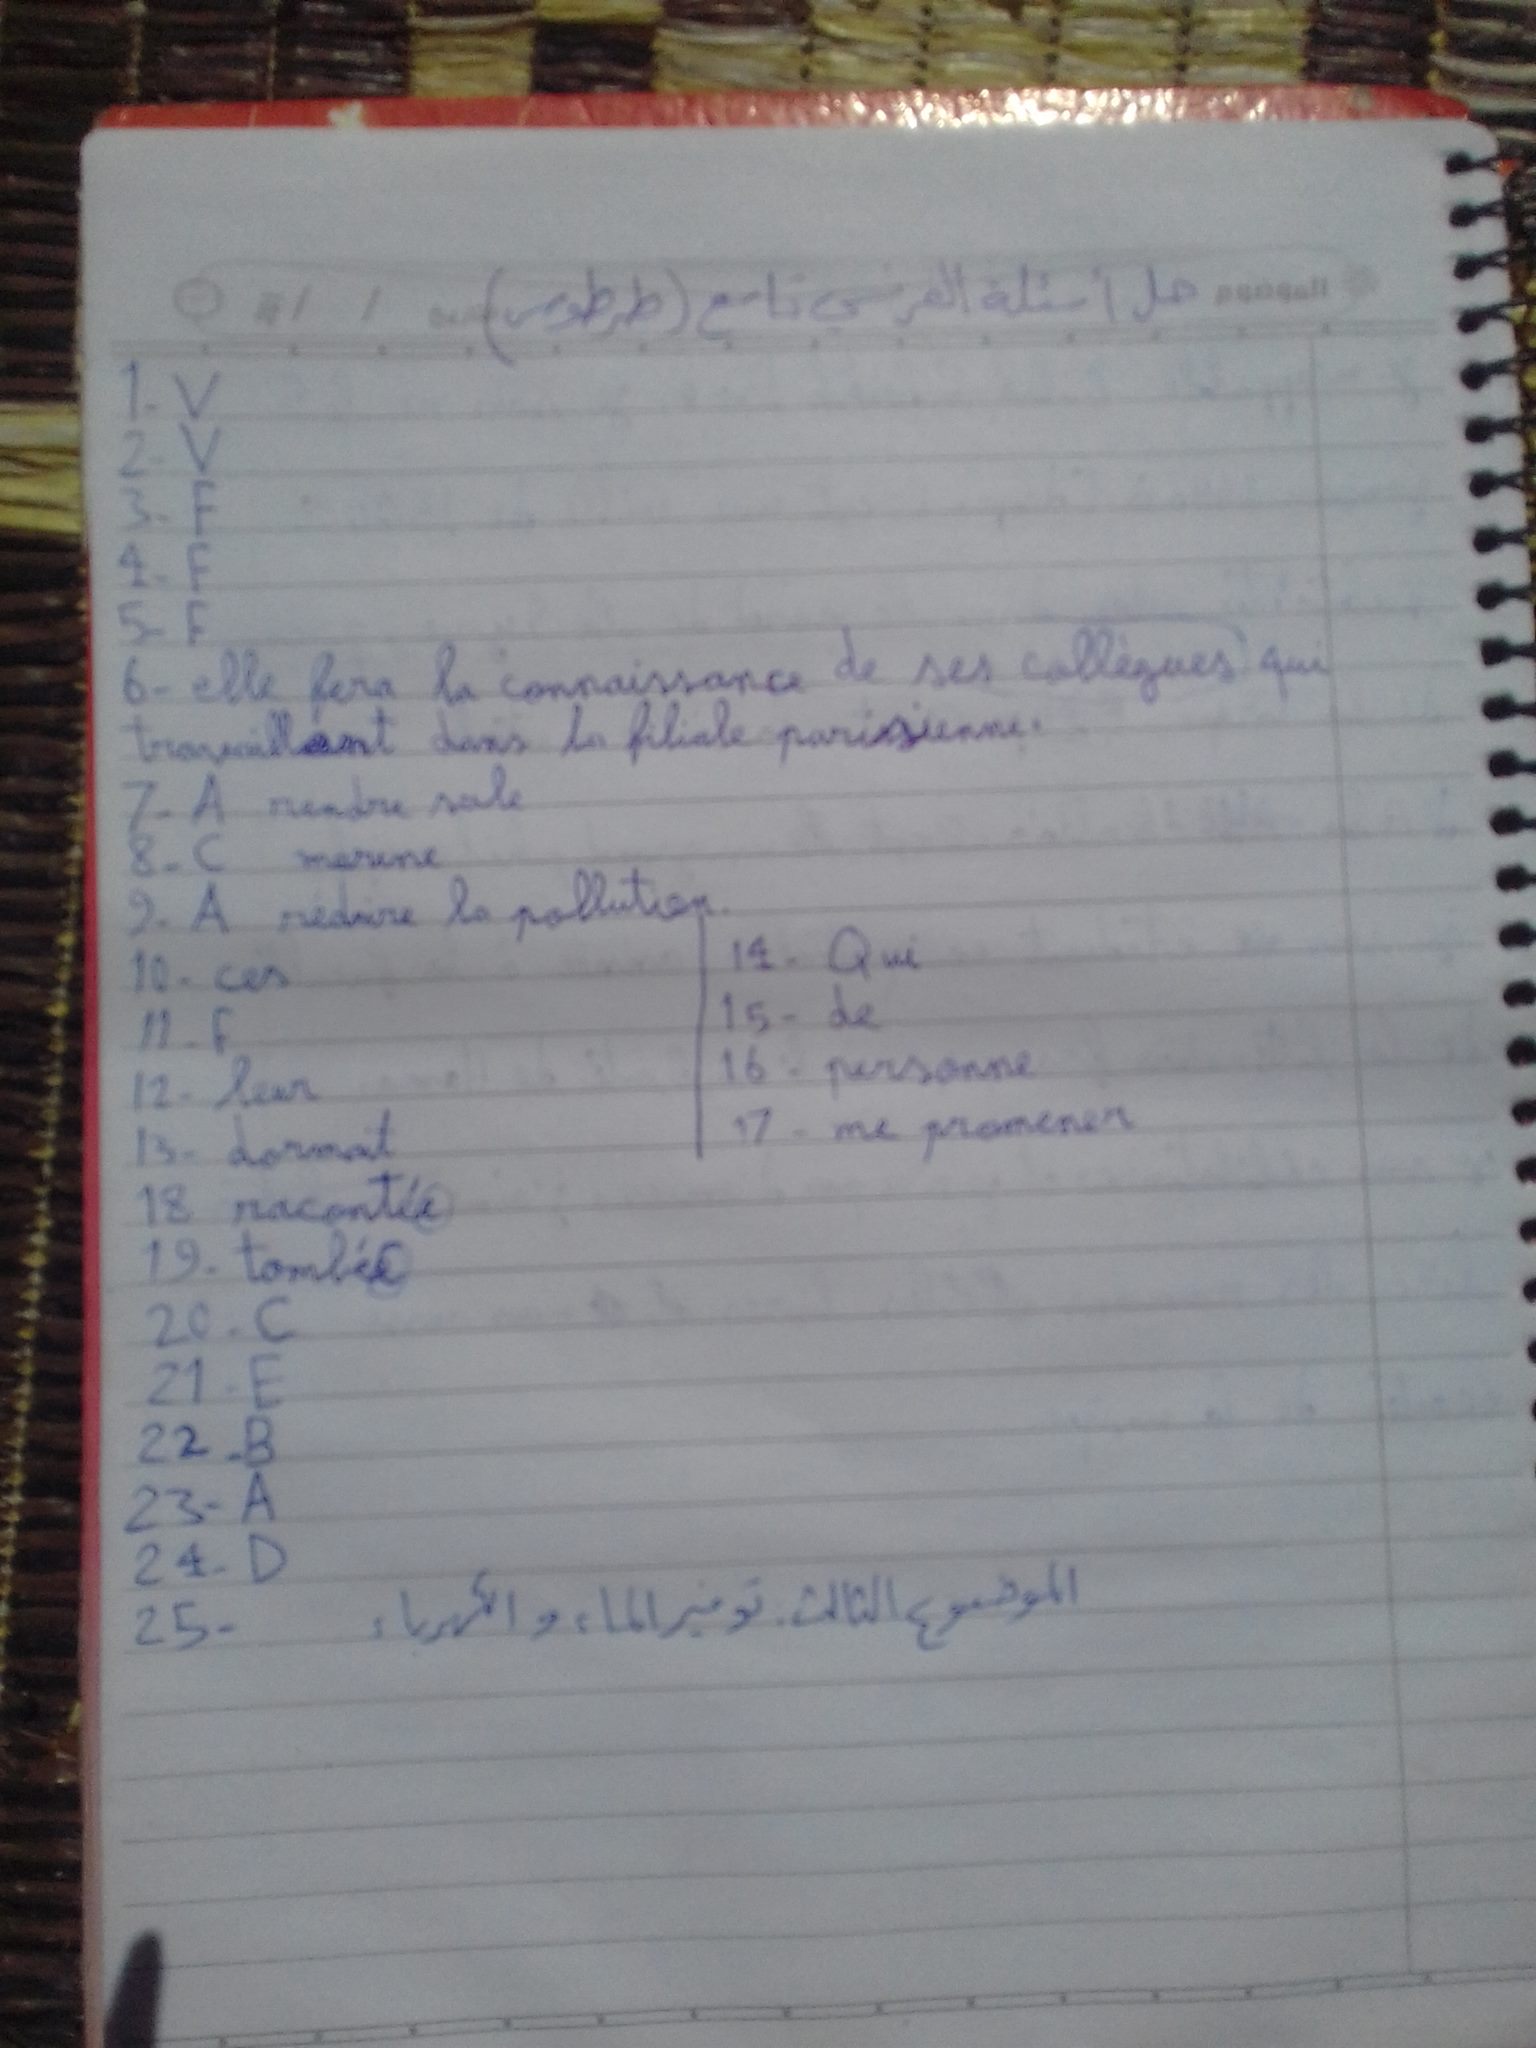 حل أسئلة الفرنسي تاسع (طرطوس)
1- V
2- V
3- F
4- F
5- F
6- elle fera la connaissance de ses collègues qui
travaillent dans la filiale parisienne.
7- A rendre sale
8- C marine
9- A réduire la pollution.
10- ces
11- F
12- leur
13- dormait
14- Qui
15- de
16- personne
17- me promener
18 racontée
19- tombée
20- C
21- E
22- B
23- A
24- D
25- الموضوع الثالث: توفير الماء و الكهرباء